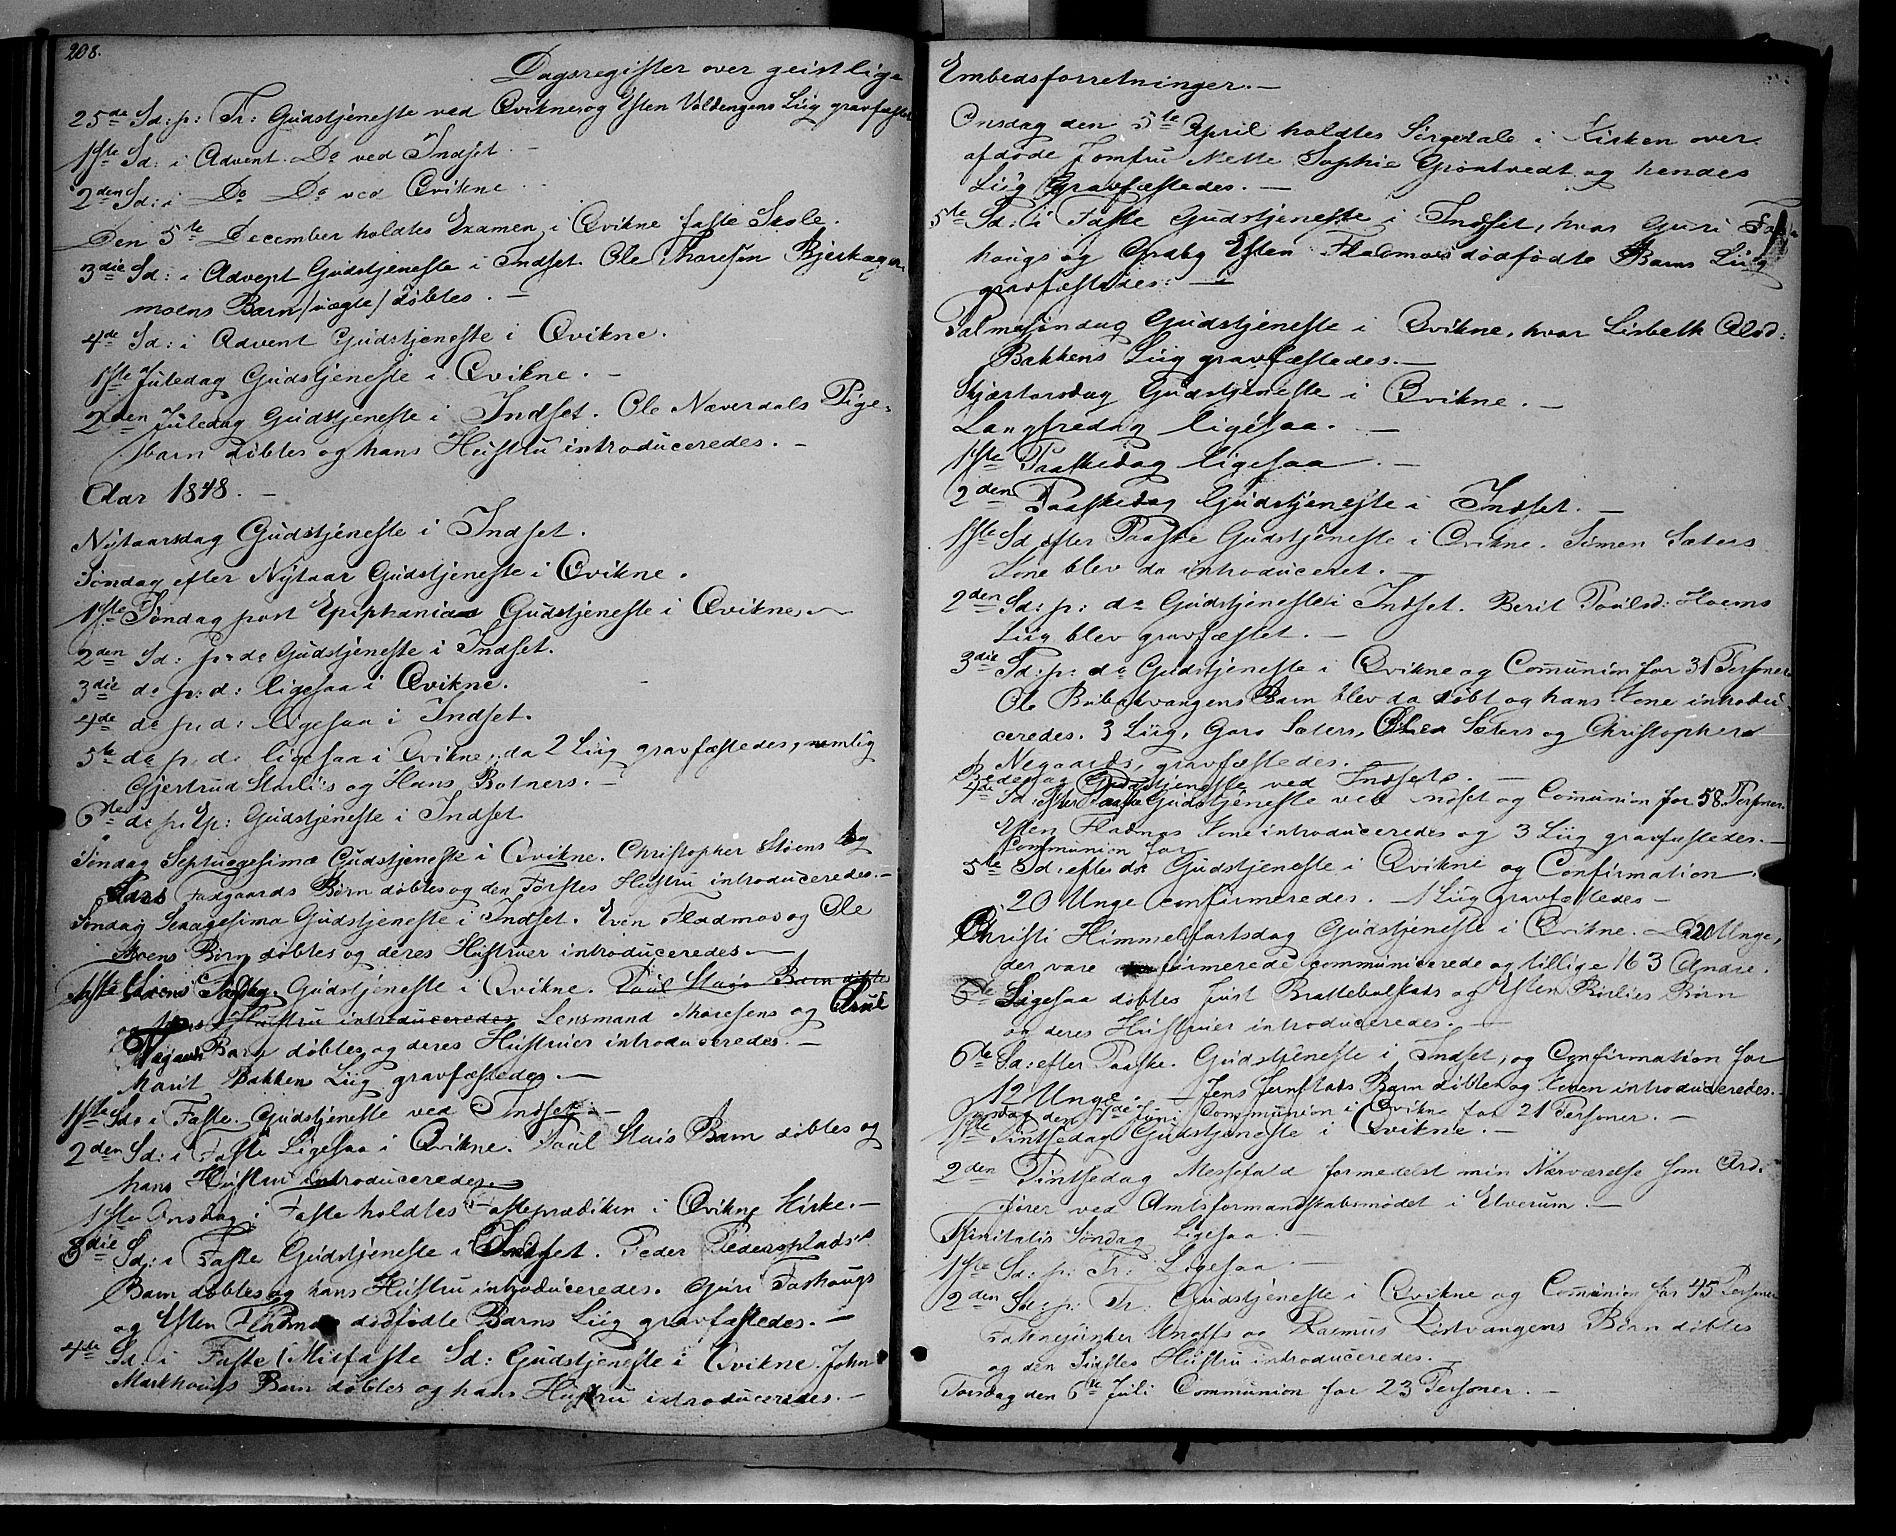 208.
Dagsregister over geistlige
25de Sd: p: Tr: Gudstjeneste ved Qvikne og Esten Voldengens Liig gravfæstet
1ste Sd: i Advent. Do ved Indset. -
2den Sd: i Do Do ved Qvikne. -
Den 5te December holdtes Examen i Qvikne faste Skole.
3die Sd: i Advent Gudstjeneste i Indset. Ole Thoresen Bjerkager
moens Barn /uægte/ døbtes. -
4de Sd: i Advent Gudstjeneste i Qvikne.
1ste Juledag Gudstjeneste i Qvikne. -
2den Juledag Gudstjeneste i Indset. Ole Næverdals Pige-
barn døbtes og hans Hustru introduceredes. -
Aar 1848. -
Nytaarsdag Gudstjeneste i Indset.
Søndag efter Nytaar Gudstjeneste i Qvikne.
1ste Søndag post Epiphanias Gudstjeneste i Qvikne. -
2den Sd: p: do Gudstjeneste i Indset.
3die do p: d: ligesaa i Qvikne.
4de do p: d: ligesaa i Indset.
5te do p. d. ligesaa i Qvikne, da 2 Liig gravfæstedes, nemlig
Gjertrud Starlis og Hans Botners. -
6te do p: Ep: Gudstjeneste i Indset
Søndag Septuagesima Gudstjeneste i Qvikne. Christopher Støens og
Lars Fadgaards Børn døbtes og den Førstes Hustru introduceredes. -
Søndag Sexagesima Gudstjeneste i Indset. Even Fladmos og Ole
Moens Børn døbtes og deres Hustruer introduceredes -
Søndag Gudstjeneste i Qvikne. Poul Stais Barn døbtes
og hans Hustru introduceredes Lensmand Thoresens og
Barn døbtes og deres Hustruer introduceredes. -
Marit Bakken Liig gravfæstedes. -
1ste Sd: i Faste. Gudstjeneste ved Indset. -
2den Sd: i Faste Ligesaa i Qvikne. Poul Stais Barn døbtes og
hans Hustru introduceredes.
1ste Onsdag i Faste holdtes Fasteprædiken i Qvikne Kirke. -
3die Sd: i Faste Gudstjeneste i Indset. Peder Pedersplads's
Barn døbtes og hans Hustru introduceredes. Guri Foshougs
og Esten Fladmos dødfødte Barns Liig gravfæstedes. -
4de Sd: i Faste (Mitfaste Sd: Gudstjeneste i Qvikne. John
Markhougs Barn døbtes og hans Hustru introduceredes. -
Embedsforretninger. -
Onsdag den 5te April holdtes Sørgetale i Kirken over
afdøde Jomfru Mette Sophie Grøntvedt og hendes
Liig gravfæstedes. -
5te Sd: i Faste Gudstjeneste i Indset, hvor Guri Fos-
hougs og Esten Fladmoes dødfødte Barns Liig
gravfæstedes: -
Palmesøndag Gudstjeneste i Qvikne, hvor Lisbeth Olsd:
Bakkens Liig gravfæstedes. -
Skjærtorsdag Gudstjeneste i Qvikne. -
Langfredag ligesaa. -
1ste Paaskedag ligesaa. -
2den Paaskedag Gudstjeneste i Indset. -
1ste Sd. efter Paaske Gudstjeneste i Qvikne. Simen Sæters
Kone blev da introduceret. -
2den Sd: p: do Gudstjeneste i Indset. Berit Poulsd: Hoems
Liig blev gravfæstet. -
3die Sd: p: do Gudstjeneste i Qvikne og Communion for 31 Personer
Ole Barn blev da døbt og hans Kone introdu-
ceredes. 3 Liig, Goro Sæters, Sæters og Christopher
Negaards, gravfæstedes. -
Bededag Gudstjeneste ved Indset. -
4de Sd: efter Paaske Gudstjeneste ved Indset og Communion for 58 Personer.
Esten Fladmos Kone introduceredes og 3 Liig gravfæstedes. -
Communion for
5te Sd: efter do Gudstjeneste i Qvikne og Confirmation.
20 Unge confirmeredes. 1 Liig gravfæstedes -
Christi Himmelfartsdag Gudstjeneste i Qvikne. De 20 Unge,
der vare confirmerede communicerede og tillige 163 Andre.
Ligesaa døbtes Just Brattebulstads og Esten Børn
og deres Hustruer introduceredes. -
6te Sd: efter Paaske. Gudstjeneste i Indset, og Confirmation for
12 Unge. - Jens Jernstads Barn døbtes og Konen introduceredes. -
Onsdag den 7de Juni Communion i Qvikne for 21 Personer. -
1ste Pintsedag Gudstjeneste i Qvikne. -
2den Pintsedag Messefald formedelst min Nærværelse som Ord-
fører ved Amtsformandskabsmødet i Elverum. -
Trinitatis Søndag Ligesaa. -
1ste Sd: p: Tr: Ligesaa. -
2den Sd: p: Tr: Gudstjeneste i Qvikne og Communion for 45 Personer
Fahnejunker og Rasmus Røstvangens Børn døbtes
og den Sidstes Hustru introduceredes. -
Torsdag den 6te Juli Communion for 23 Personer. -